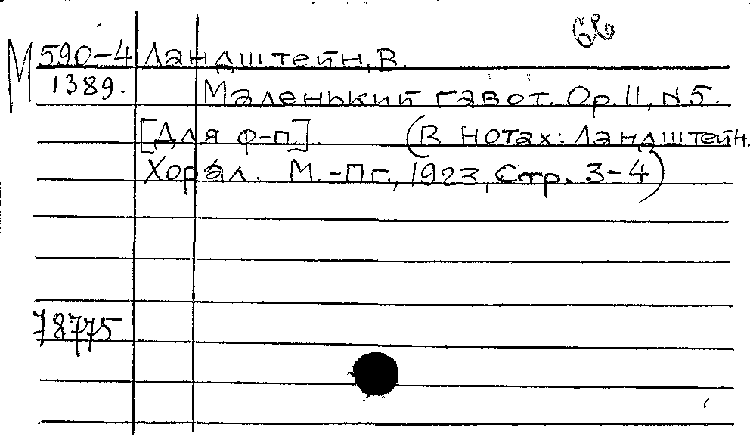 М 590-4 Ландштейн, В.
1389. Маленький гавот. Op. 11, N 5.
[Для ф-п.]. (В нотах: Ландштейн.
Хорал. М.-Пг., 1923, стр. 3-4)
78775